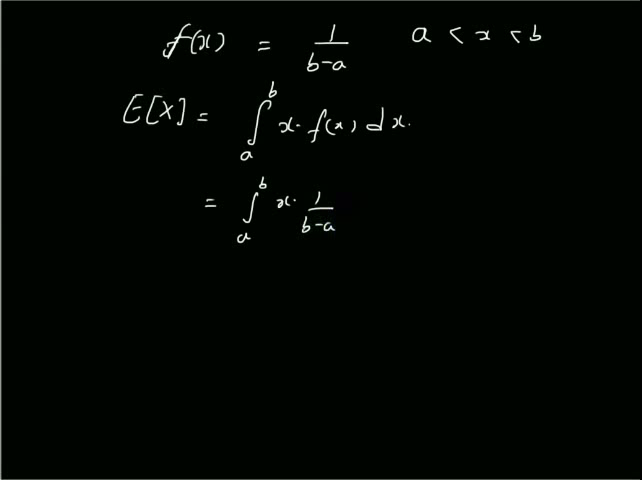 f(x) = 1/(b-a) a < x < b
E[X] = ∫_a^b x. f(x) dx.
= ∫_a^b x. 1/(b-a)